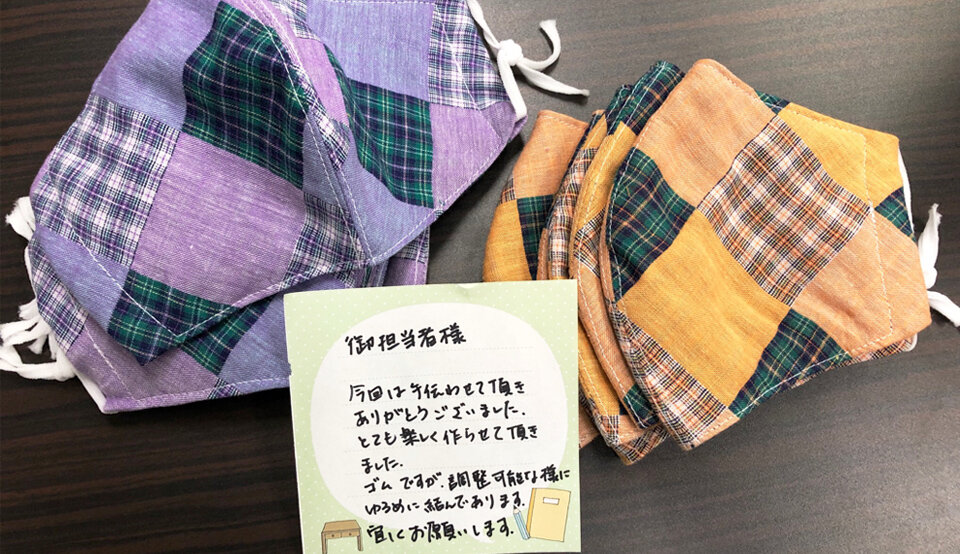 御担当者様
今回は手伝わせて頂き
ありがとうございました.
とても楽しく作らせて頂き
ました.
ゴムですが、調整可能な様に
ゆるめに結んであります.
宜しくお願いします.